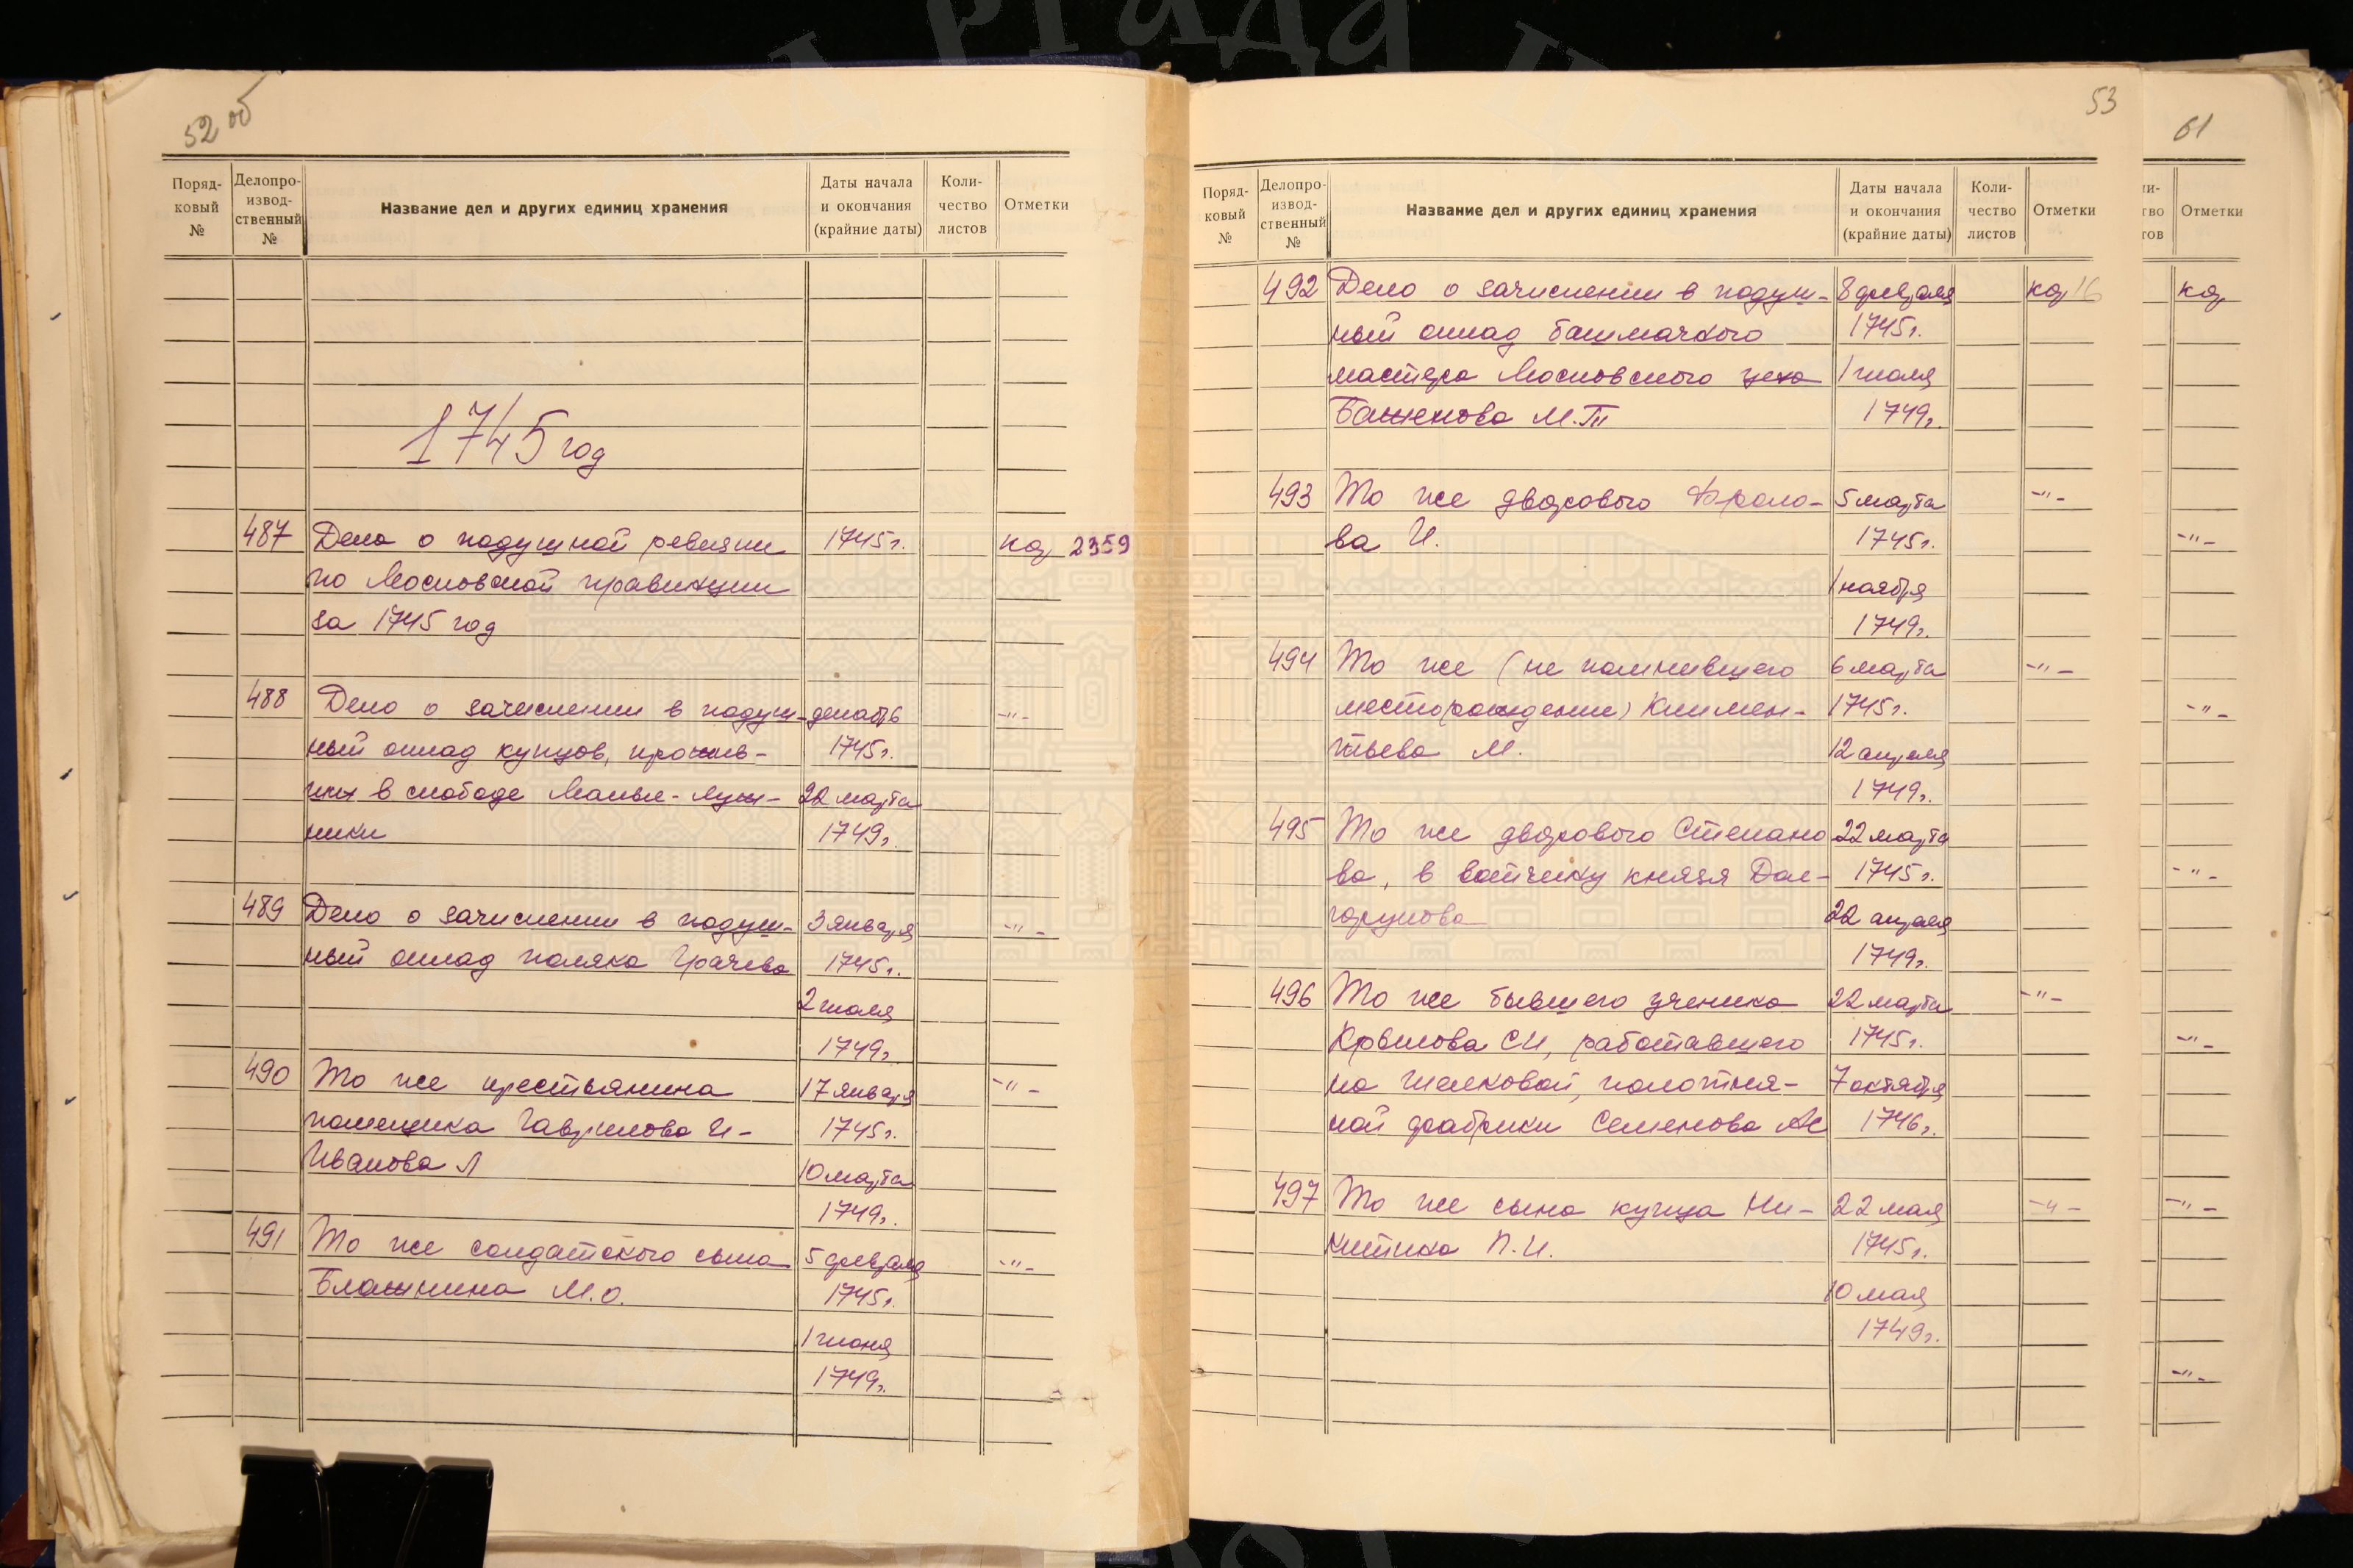 РГАДА
52 об
Поряд-
ковый
№
Делопро-
извод-
ственный
№
Название дел и других единиц хранения
Даты начала
и окончания
(крайние даты)
Коли-
чество
листов
Отметки
1745 год
487 Дело о подушной ревизии 1745 г. 2359
по Московской правинции
за 1745 год
488 Дело о зачислении в подуш- -"-
ный оклад купцов, прожив- 1745 г.
ших в слободе Малые-Луж- 22 марта
ники 1749 г.
489 Дело о зачислении в подуш- 3 января -"-
ный оклад поляка Грачева 1745 г.
2 июля
1749 г.
490 То же крестьянина 17 января -"-
помещика Гаврилова И- 1745 г.
Иванова Л 10 марта
1749 г.
491 То же солдатского сына 5 февраля -"-
М.О. 1745 г.
1 июня
1749 г.
53
Поряд-
ковый
№
Делопро-
извод-
ственный
№
Название дел и других единиц хранения
Даты начала
и окончания
(крайние даты)
Коли-
чество
листов
Отметки
492 Дело о зачислении в подуш- 8 февраля 16
ный оклад башмачного 1745 г.
мастера Московского цеха 1 июля
Баженова М.П 1749 г.
493 То же дворового Фроло- 5 марта -"-
ва И. 1745 г.
1 ноября
1749 г.
494 То же (не помнившего 6 марта -"-
месторождение) Климен- 1745 г.
тьева М. 12 апреля
1749 г.
495 То же дворового Степано 22 марта
ва, в вотчину князя Дол- 1745 г.
горукова 22 апреля
1749 г.
496 То же бывшего ученика 22 марта -"-
Крылова СИ, работавшего 1745 г.
на шелковой, полотня- 7 октября
ной фабрики Семенова АС 1746 г.
497 То же сына купца Ни- 22 мая -"-
китина П.И. 1745 г.
10 мая
1749 г.
61
Отметки
-"-
-"-
-"-
-"-
-"-
-"-